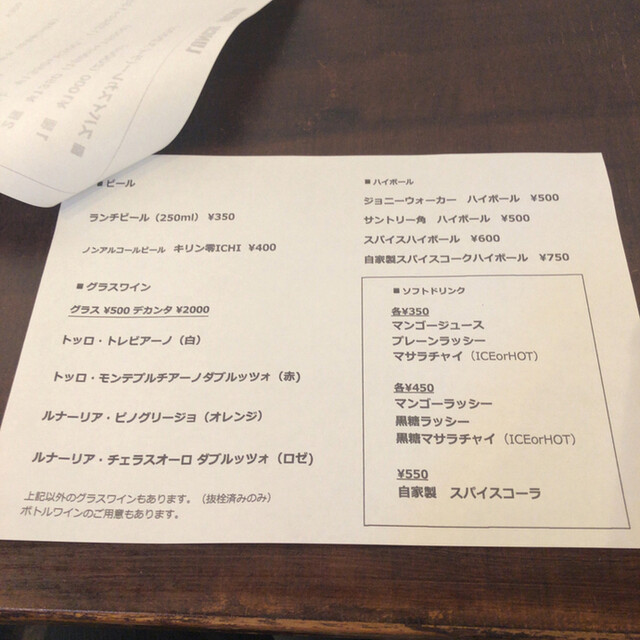 ■ ビール
ランチビール（250ml） ¥350
ノンアルコールビール キリン零ICHI ¥400
■ グラスワイン
グラス ¥500 デカンタ ¥2000
トッロ・トレビアーノ（白）
トッロ・モンテプルチアーノダブルッツォ（赤）
ルナーリア・ピノグリージョ（オレンジ）
ルナーリア・チェラスオーロ ダブルッツォ（ロゼ）
上記以外のグラスワインもあります。（抜栓済みのみ）
ボトルワインのご用意もあります。
■ ハイボール
ジョニーウォーカー ハイボール ¥500
サントリー角 ハイボール ¥500
スパイスハイボール ¥600
自家製スパイスコークハイボール ¥750
■ ソフトドリンク
各¥350
マンゴージュース
プレーンラッシー
マサラチャイ（ICEorHOT）
各¥450
マンゴーラッシー
黒糖ラッシー
黒糖マサラチャイ（ICEorHOT）
¥550
自家製 スパイスコーラ